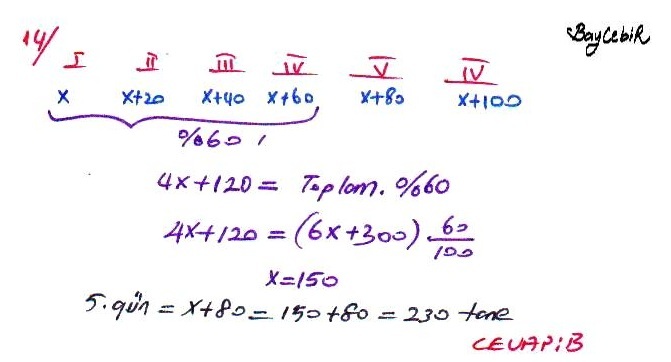 BayCebiR
14/
I II III IV V IV
x x+20 x+40 x+60 x+80 x+100
%60 ı
4x+120 = Toplam. %60
4x+120 = (6x+300) . 60/100
x=150
5.gün = x+80 = 150+80 = 230 tane
CEVAP:B